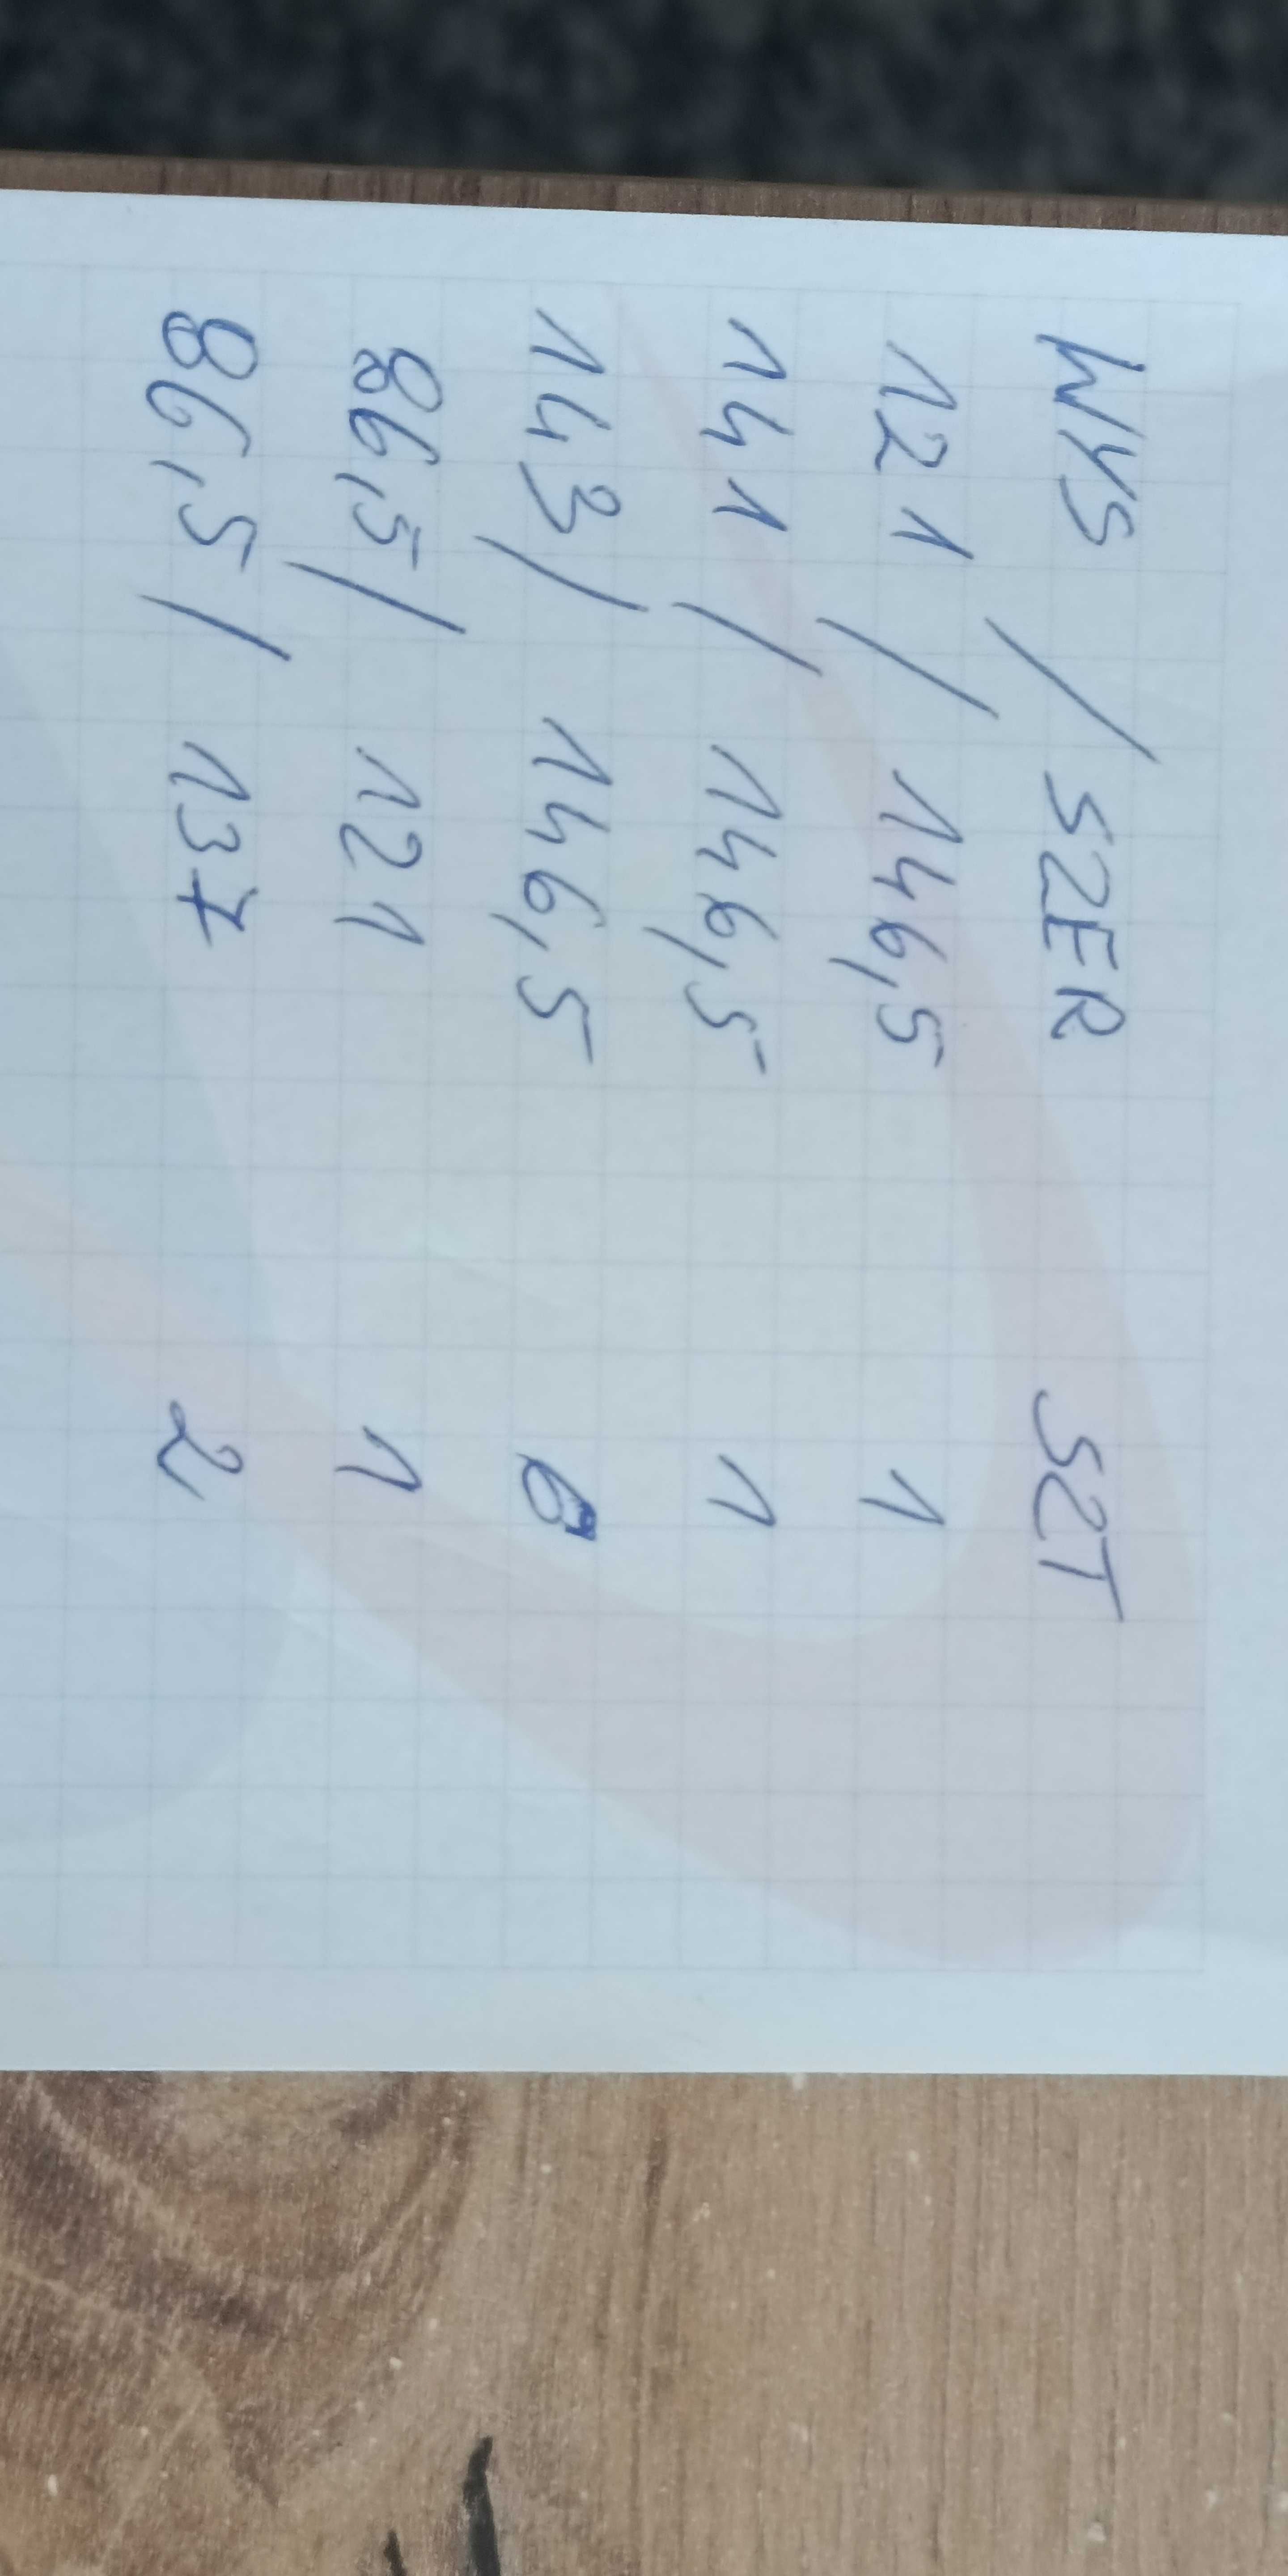 WYS / SZER SZT
121 / 146,5 1
141 / 146,5 1
143 / 146,5 6
86,5 / 121 1
86,5 / 137 2